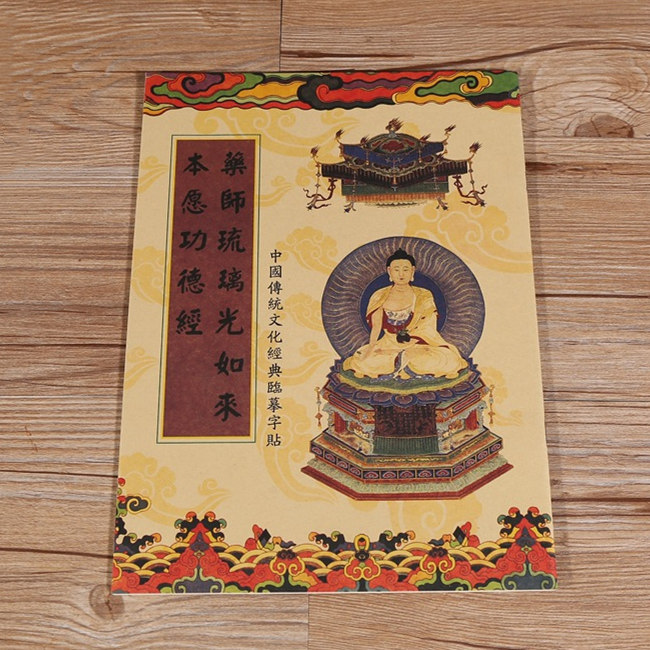 藥師琉璃光如來
本愿功德經
中國傳統文化經典臨摹字貼